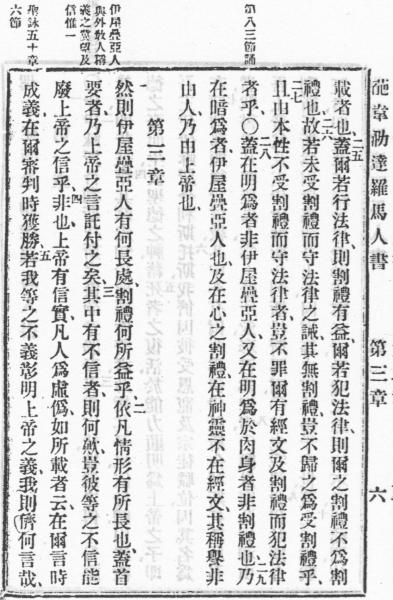 葩韋泐達羅馬人書 第三章 六
載者也、二五蓋爾若行法律、則割禮有益、爾若犯法律、則爾之割禮不爲割
禮也、二六故若未受割禮而守法律之誡、其無割禮、豈不歸之爲受割禮乎、
二七且由本性不受割禮而守法律者、豈不罪爾有經文及割禮而犯法律
者乎、〇二八蓋在明爲者非伊屋疊亞人、又在明爲於肉身者非割禮也、二九乃
在暗爲者伊屋疊亞人也、及在心之割禮、在神靈不在經文、其稱譽非
由人乃由上帝也、
第八三節誦
第三章
一然則伊屋疊亞人有何長處、割禮何所益乎、二依凡情形有所長也、蓋首
要者乃上帝之言託付之矣、三其中有不信者則何歟、豈彼等之不信能
廢上帝之信乎、四非也、上帝有信實、凡人爲虛僞、如所載者云、在爾言時
成義、在爾審判時獲勝、五若我等之不義彰明上帝之義、我則儕何言哉、
伊屋疊亞人
與外敎人稱
義之冀望及
信惟一
聖詠五十章
六節